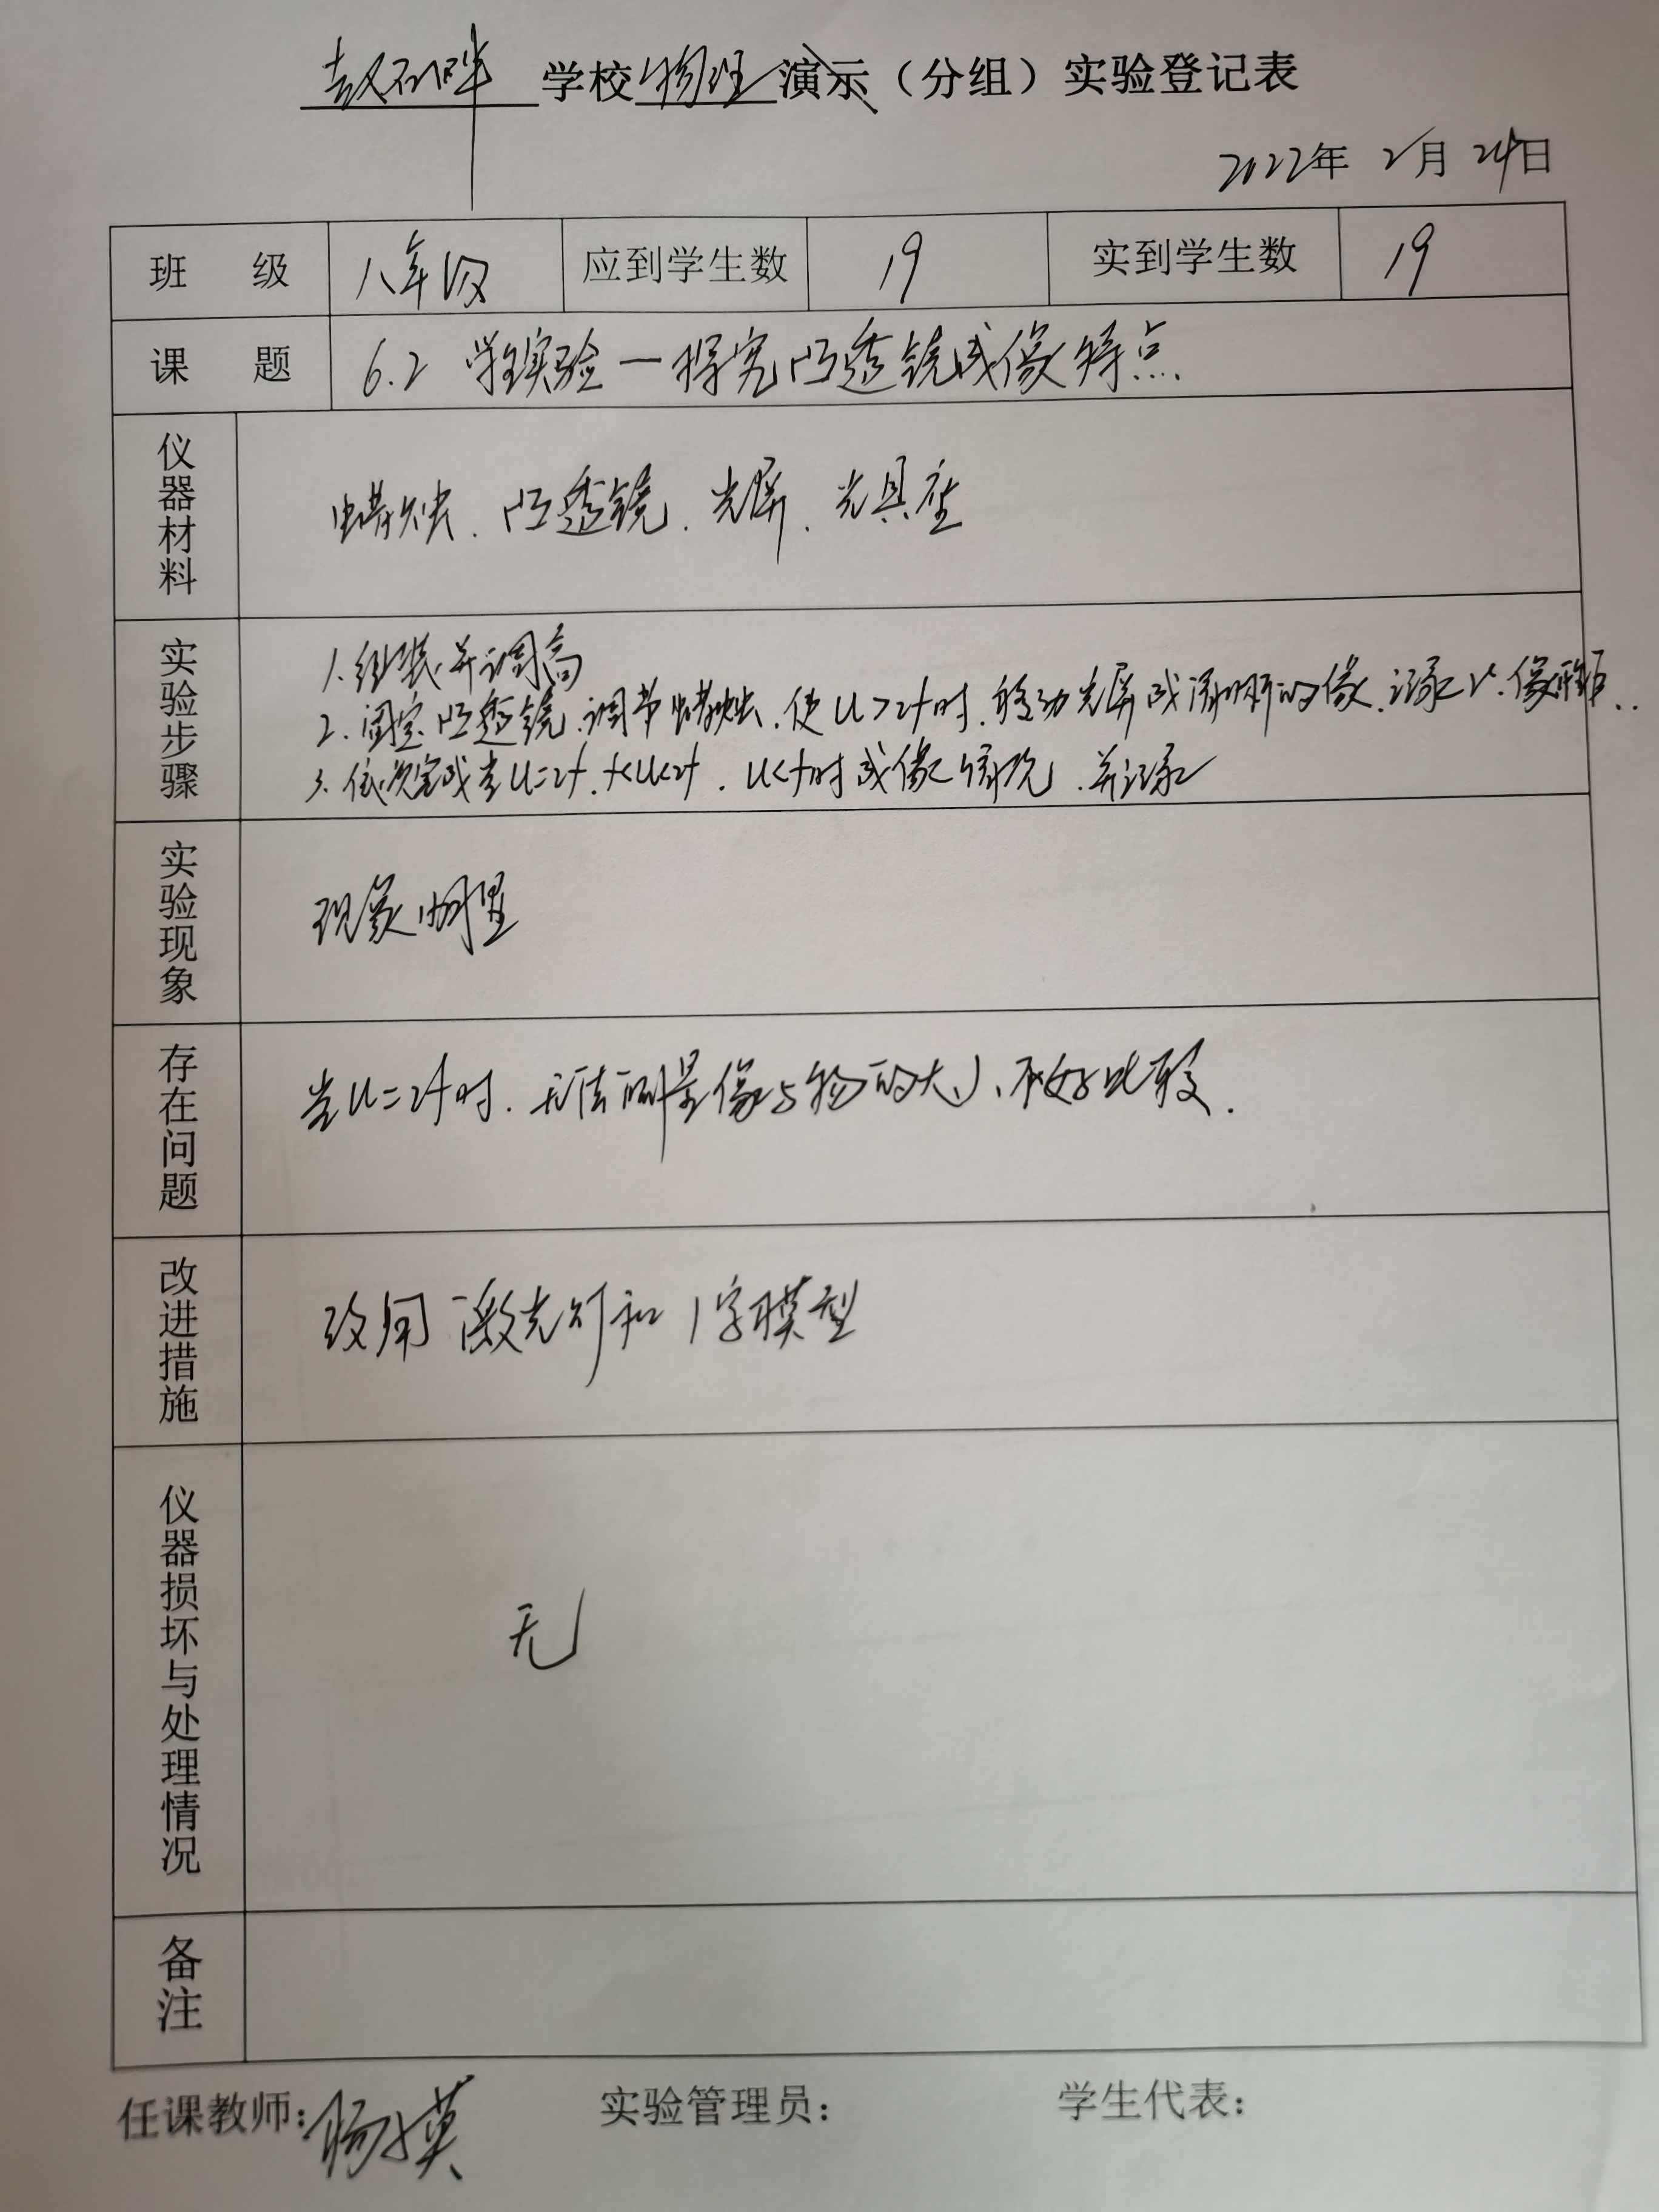 赵石畔学校物理演示（分组）实验登记表
2022年 2月 24日
班级 八年级 应到学生数 19 实到学生数 19
课题 6.2 学生实验一探究凸透镜成像特点.
仪器材料 蜡烛. 凸透镜. 光屏. 光具座
实验步骤 1.组装并调高
2.固定凸透镜.调节蜡烛.使u>2f时.移动光屏成清晰的像.记录v.像
3.依次完成当u=2f.f<u<2f.u<f时成像情况.并记录
实验现象 现象明显
存在问题 当u=2f时.无法测量像与物的大小、不好比较.
改进措施 改用激光灯和1字模型
仪器损坏与处理情况 无
备注
任课教师: 杨 实验管理员: 学生代表: